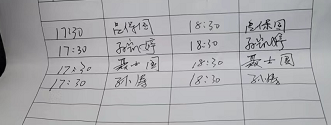 17:30 吕保国 18:30 吕保国
17:30 孙凯婷 18:30 孙凯婷
17:30 聂士国 18:30 聂士国
17:30 孙涛 18:30 孙涛